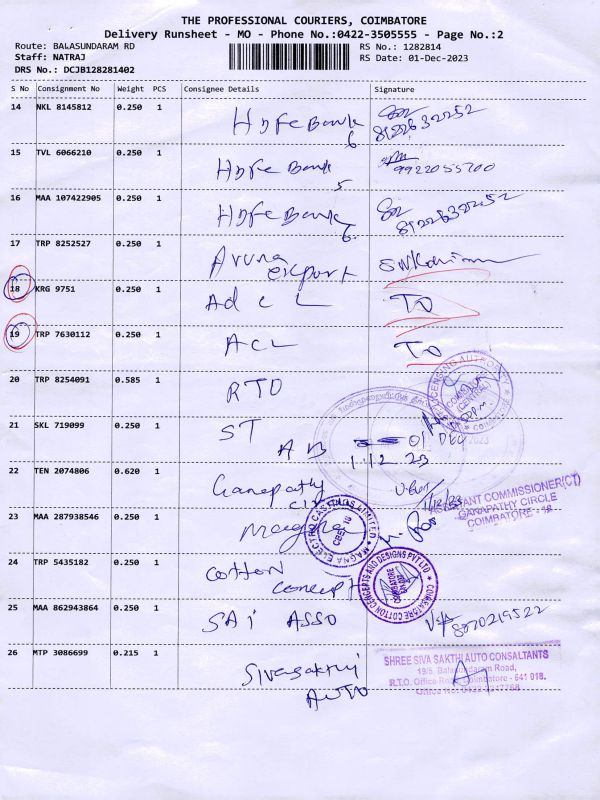 THE PROFESSIONAL COURIERS, COIMBATORE
Delivery Runsheet - MO - Phone No.:0422-3505555 - Page No.:2
Route: BALASUNDARAM RD RS No.: 1282814
Staff: NATRAJ RS Date: 01-Dec-2023
DRS No.: DCJB128281402
S No Consignment No Weight PCS Consignee Details Signature
14 NKL 8145812 0.250 1 Hdfc Bank 6 8122632252
15 TVL 6066210 0.250 1 Hdfc Bank 5 9922055700
16 MAA 107422905 0.250 1 Hdfc Bank 6 8122632252
17 TRP 8252527 0.250 1 Aruna export
18 KRG 9751 0.250 1 Ad C L TO
19 TRP 7630112 0.250 1 ACL TO
20 TRP 8254091 0.585 1 RTO
21 SKL 719099 0.250 1 ST AB 01 DEC 2023
1.12 23
22 TEN 2074806 0.620 1 Ganapathy cir 1/12/23
ASSISTANT COMMISSIONER(CT)
GANAPATHY CIRCLE
COIMBATORE - 18
23 MAA 287938546 0.250 1 Magna
MAGNA ELECTRO CASTINGS LIMITED
CBE - 18
24 TRP 5435182 0.250 1 Cotton concept
COIMBATORE COTTON CONCEPTS AND DESIGNS PVT LTD
COIMBATORE
25 MAA 862943864 0.250 1 SAi ASSO 8070219522
26 MTP 3086699 0.215 1 Sivasakthi AUTO
SHREE SIVA SAKTHI AUTO CONSULTANTS
19/5, Balasundaram Road,
R.T.O. Office Road, Coimbatore - 641 018.